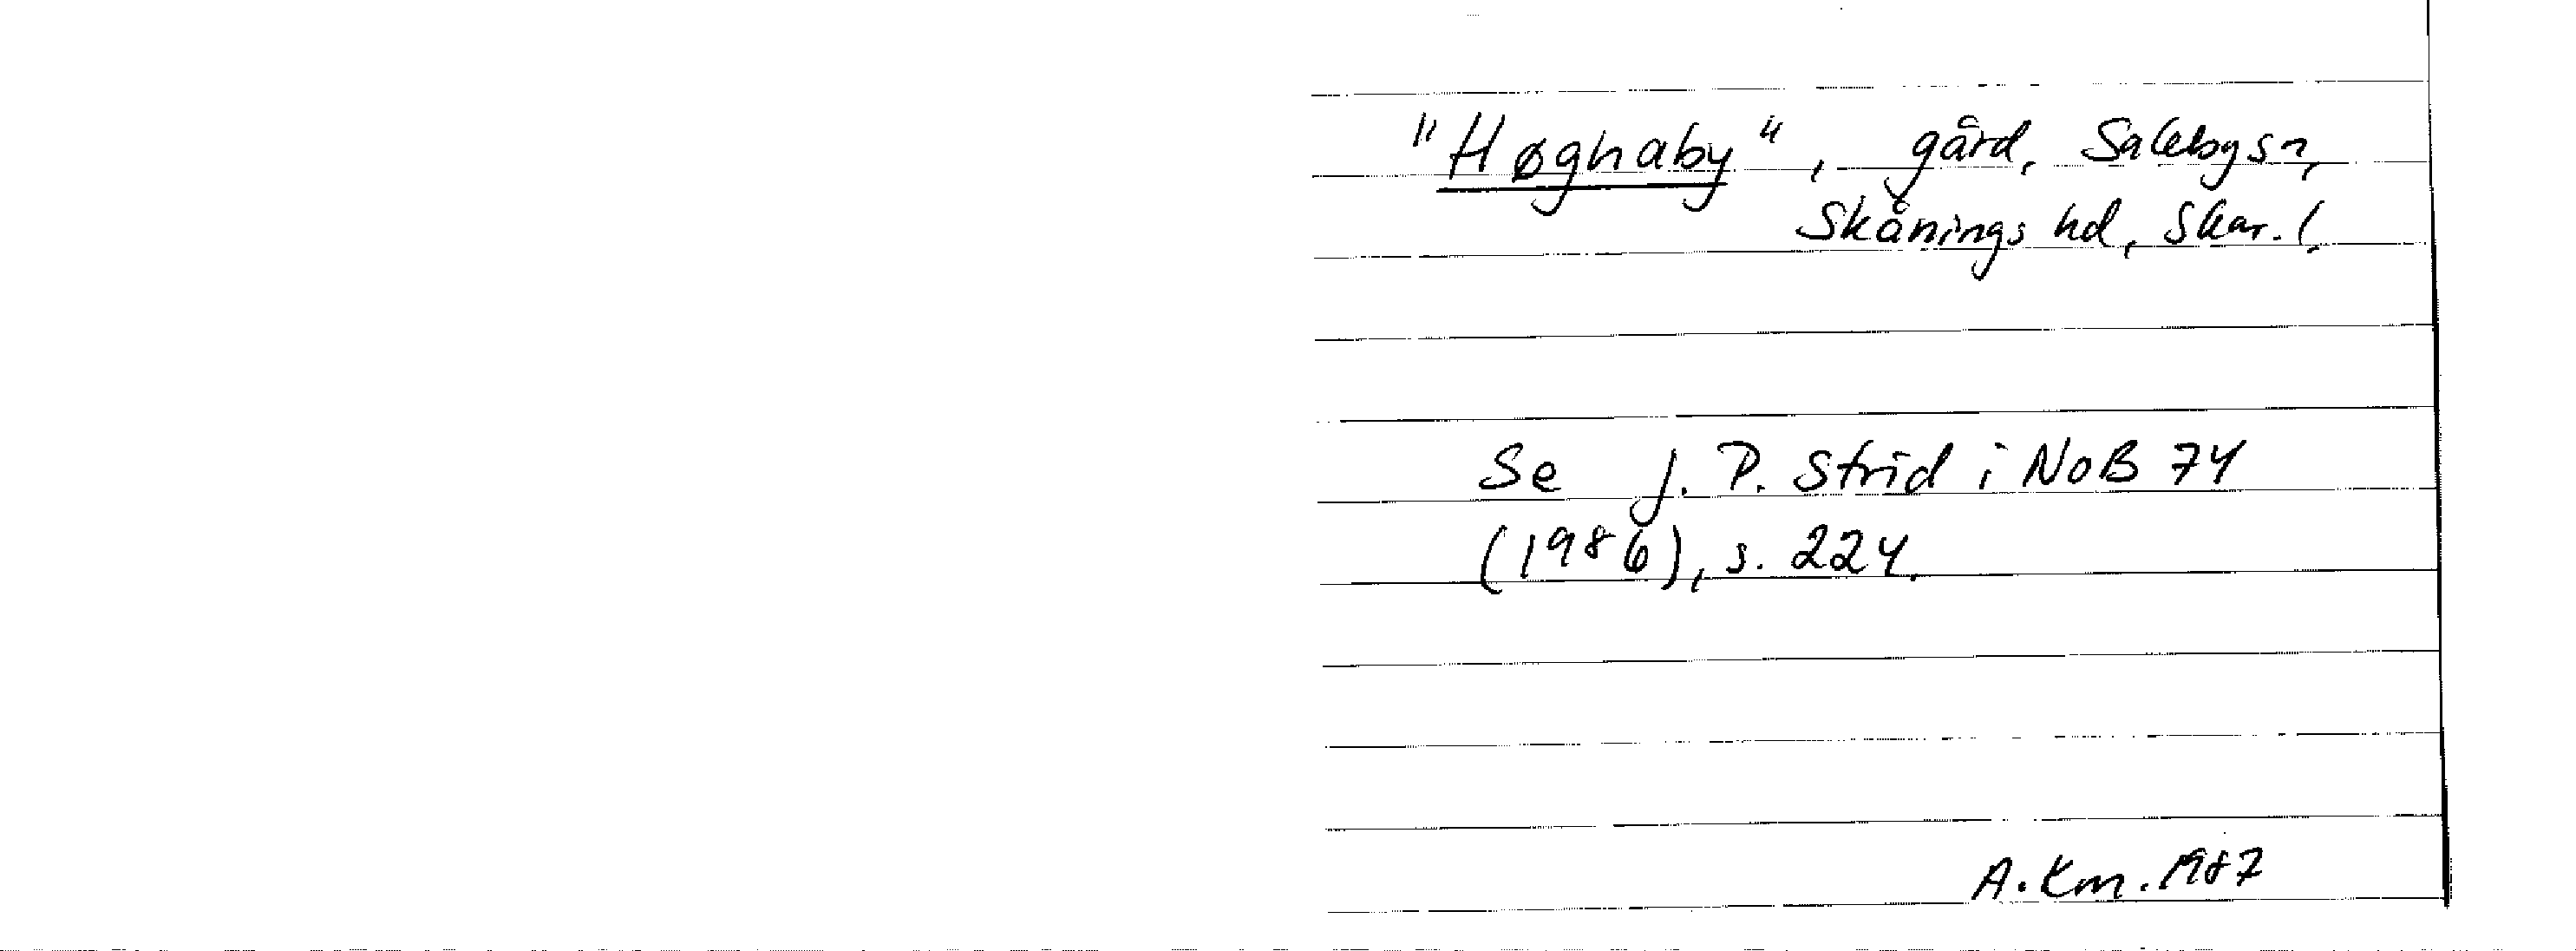 "Høgnaby", gård, Saleby sn,
Skånings hd, Skar. l.
Se J. P. Strid i NoB 74
(1986), s. 224.
A. Km. 1987